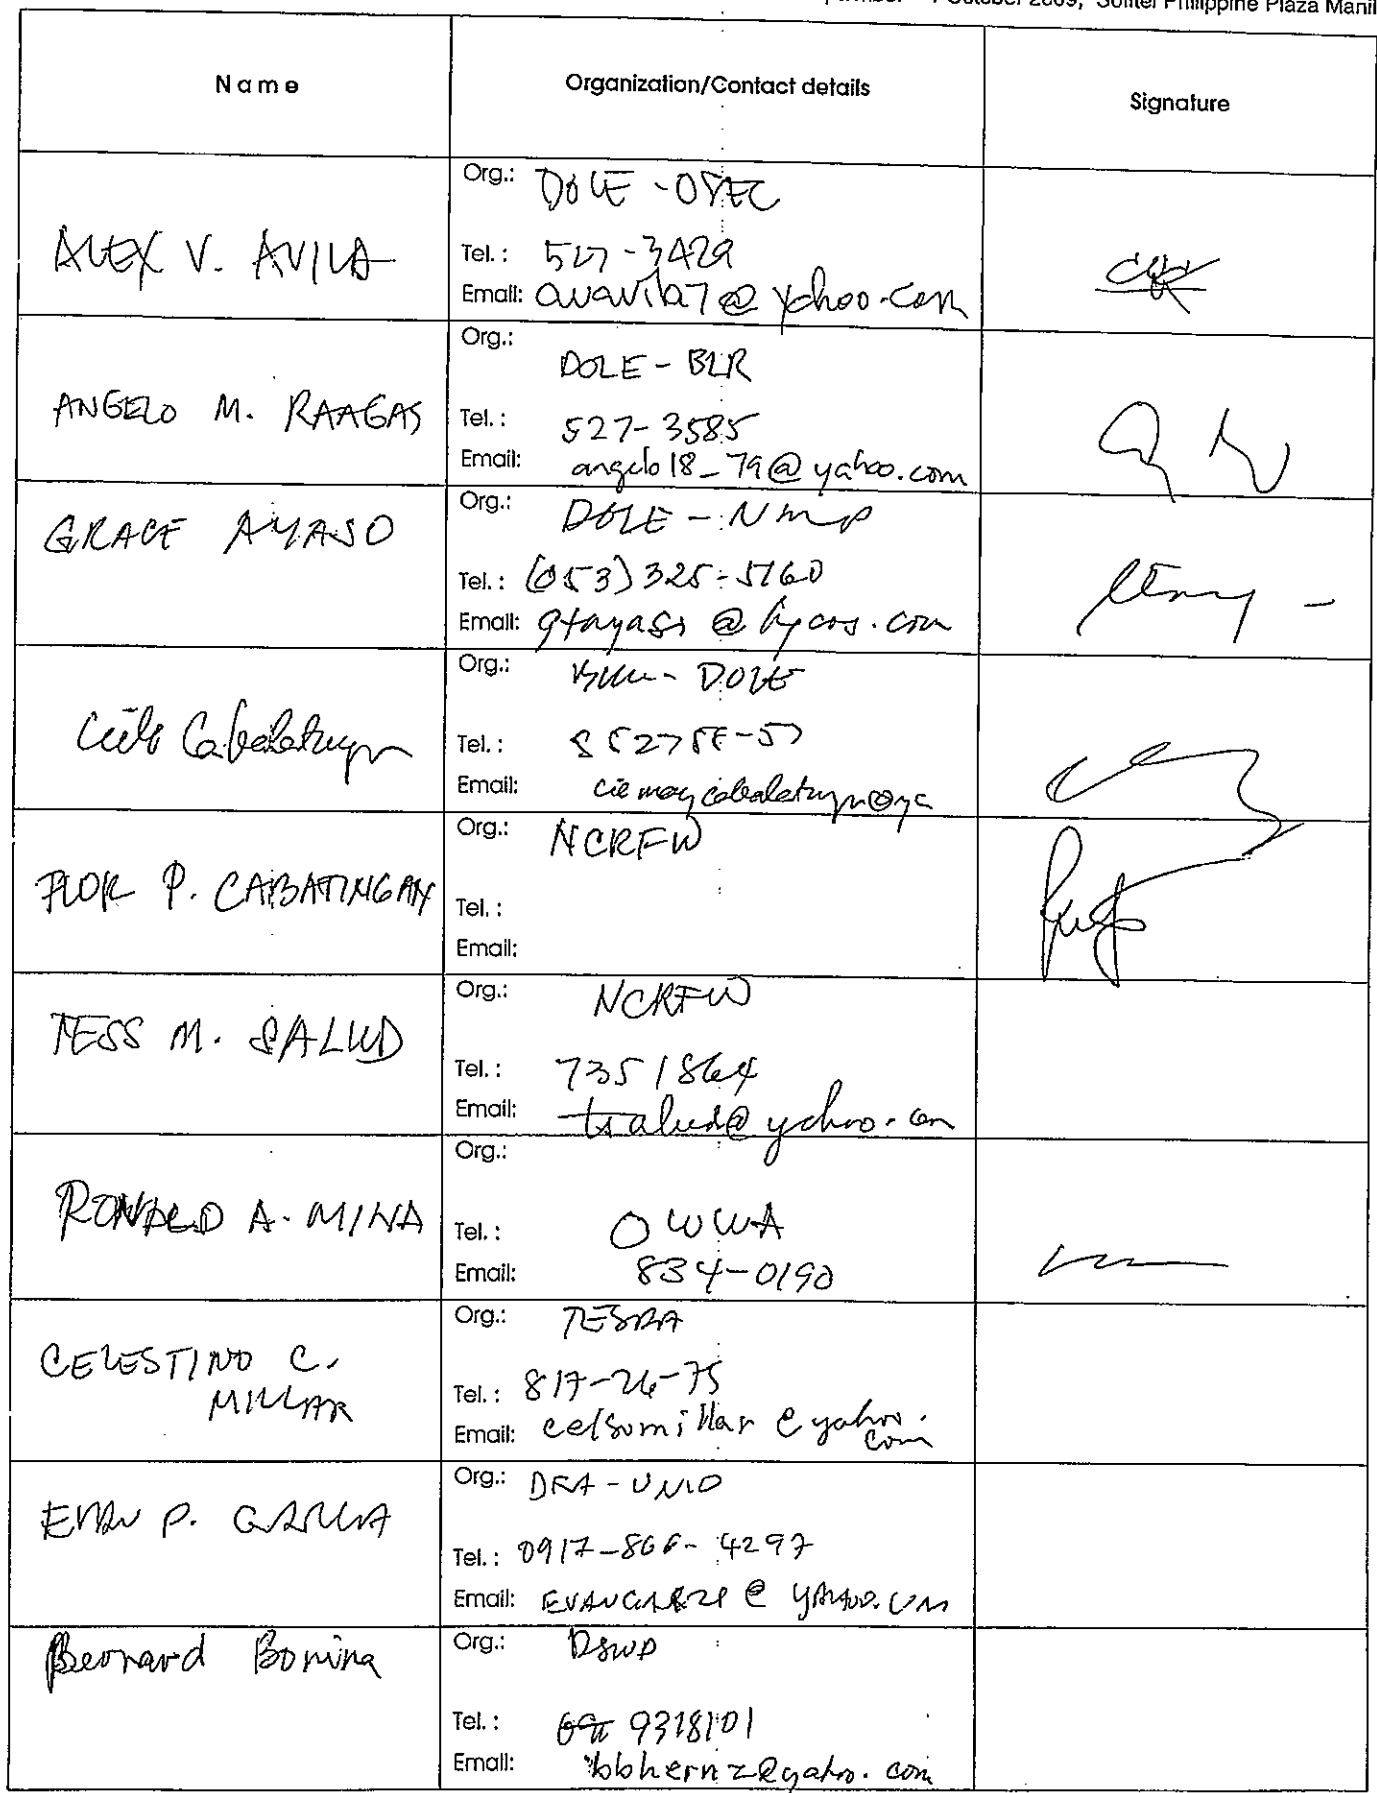 1 October 2009, Sofitel Philippine Plaza Manil
Name
Organization/Contact details
Signature
ALEX V. AVILA
Org.: DOLE - OSEC
Tel.: 527-3429
Email: avavila7@yahoo.com
ANGELO M. RAAGAS
Org.:
DOLE - BLR
Tel.: 527-3585
Email: angelo18_79@yahoo.com
GRACE AYASO
Org.: DOLE - NMP
Tel.: (053) 325-5760
Email: gtayaso@lycos.com
Org.: DOLE
Tel.:
Email:
FLOR P. CABATINGAN
Org.: NCRFW
Tel.:
Email:
TESS M. SALUD
Org.: NCRFW
Tel.: 7351864
Email: tsalud@yahoo.com
RONALD A. MINA
Org.:
Tel.: OWWA
Email: 834-0190
CELESTINO C.
MILLAR
Org.: TESDA
Tel.: 817-26-75
Email: celsomillar@yahoo.
com
EVAN P. GARCIA
Org.: DFA - UNIO
Tel.: 0917-866-4297
Email:
Bernard Bonina
Org.: DSWD
Tel.: 9318101
Email: bbhernz@yahoo.com